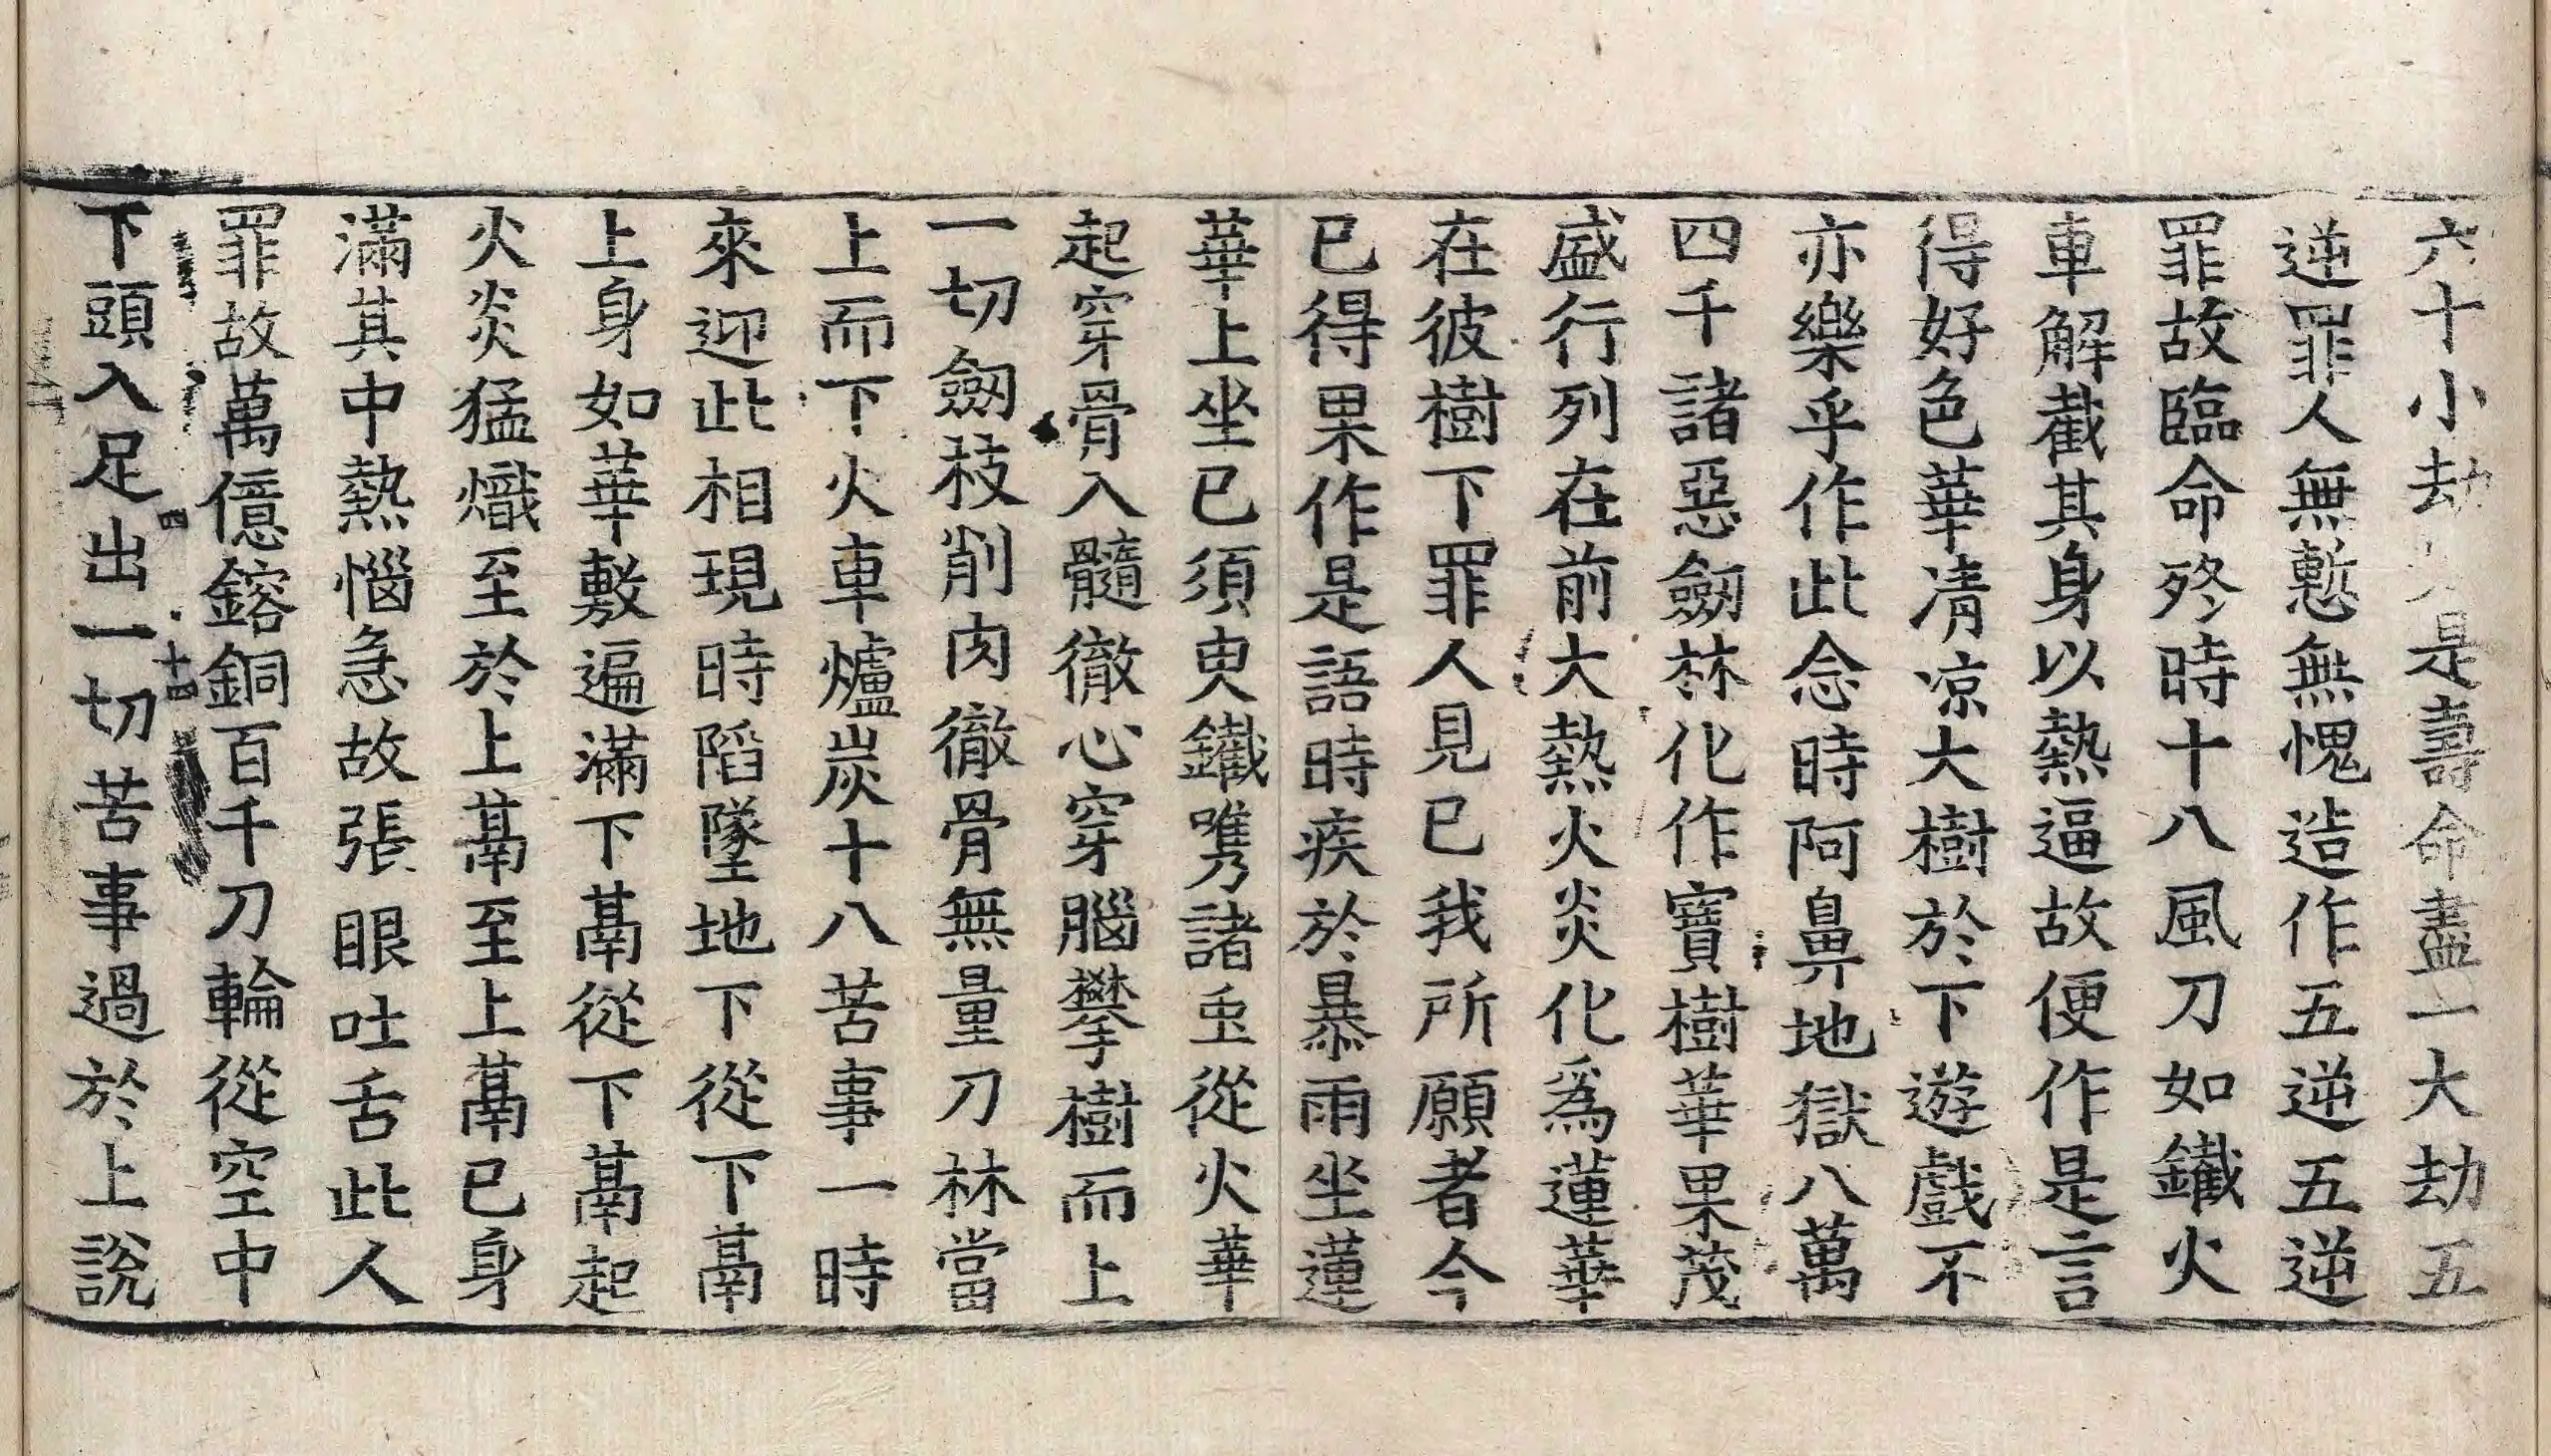 六十小劫如是壽命盡一大劫五
逆罪人無慙無愧造作五逆五逆
罪故臨命終時十八風刀如鐵火
車解截其身以熱逼故便作是言
得好色華凊凉大樹於下遊戲不
亦樂乎作此念時阿鼻地獄八萬
四千諸惡劒林化作寶樹華果茂
盛行列在前大熱火炎化爲蓮華
在彼樹下罪人見已我所願者今
已得果作是語時疾於暴雨坐蓮
華上坐已須臾鐵㗲諸䖝從火華
起穿骨入髓徹心穿腦攀樹而上
一切劒枝削肉徹骨無量刀林當
上而下火車爐炭十八苦事一時
來迎此相現時陷墜地下從下鬲
上身如華敷遍滿下鬲從下鬲起
火炎猛熾至於上鬲至上鬲已身
滿其中熱惱急故張眼吐舌此人
罪故萬億鎔銅百千刀輪從空中
下頭入足出一切苦事過於上說
四
十四